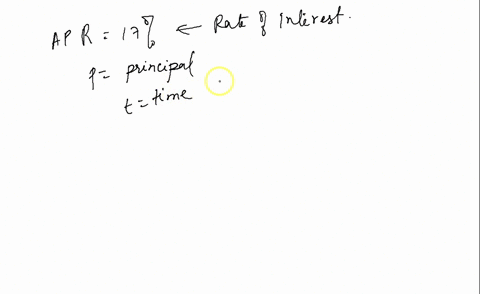 APR = 17% ← Rate of Interest.
P = principal
t = time